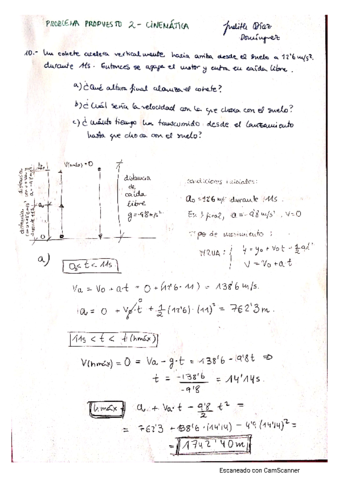 PROBLEMA PROPUESTO 2 - CINEMÁTICA
Judith Díaz
Domínguez
10.- Un cohete acelera verticalmente hacia arriba desde el suelo a 12'6 m/s²
durante 11s. Entonces se apaga el motor y entra en caída libre.
a) ¿Qué altura final alcanza el cohete?
b) ¿Cuál sería la velocidad con la que choca con el suelo?
c) ¿Cuánto tiempo ha transcurrido desde el lanzamiento
hasta que choca con el suelo?
V(hmáx) = 0
distancia
de
caída
libre
g = -9.8 m/s²
condiciones iniciales:
durante 11s.
V = 0
Tipo de movimiento:
MRUA: { y = y₀ + v₀t - ½at²
V = V₀ + at
a)
0 < t < 11s
Va = V₀ + a·t = 0 + (12'6 · 11) = 138'6 m/s.
(11)² = 762'3 m.
11s < t < t(hmáx)
V(hmáx) = 0 = Va - g·t = 138'6 - 9'8t ⇒
t = -138'6 / -9'8 = 14'14s.
hmáx
Va·t - 9'8/2 t² =
= 762'3 + 138'6 · (14'14) - 4'9 (14'14)² =
= 1742'40 m
Escaneado con CamScanner